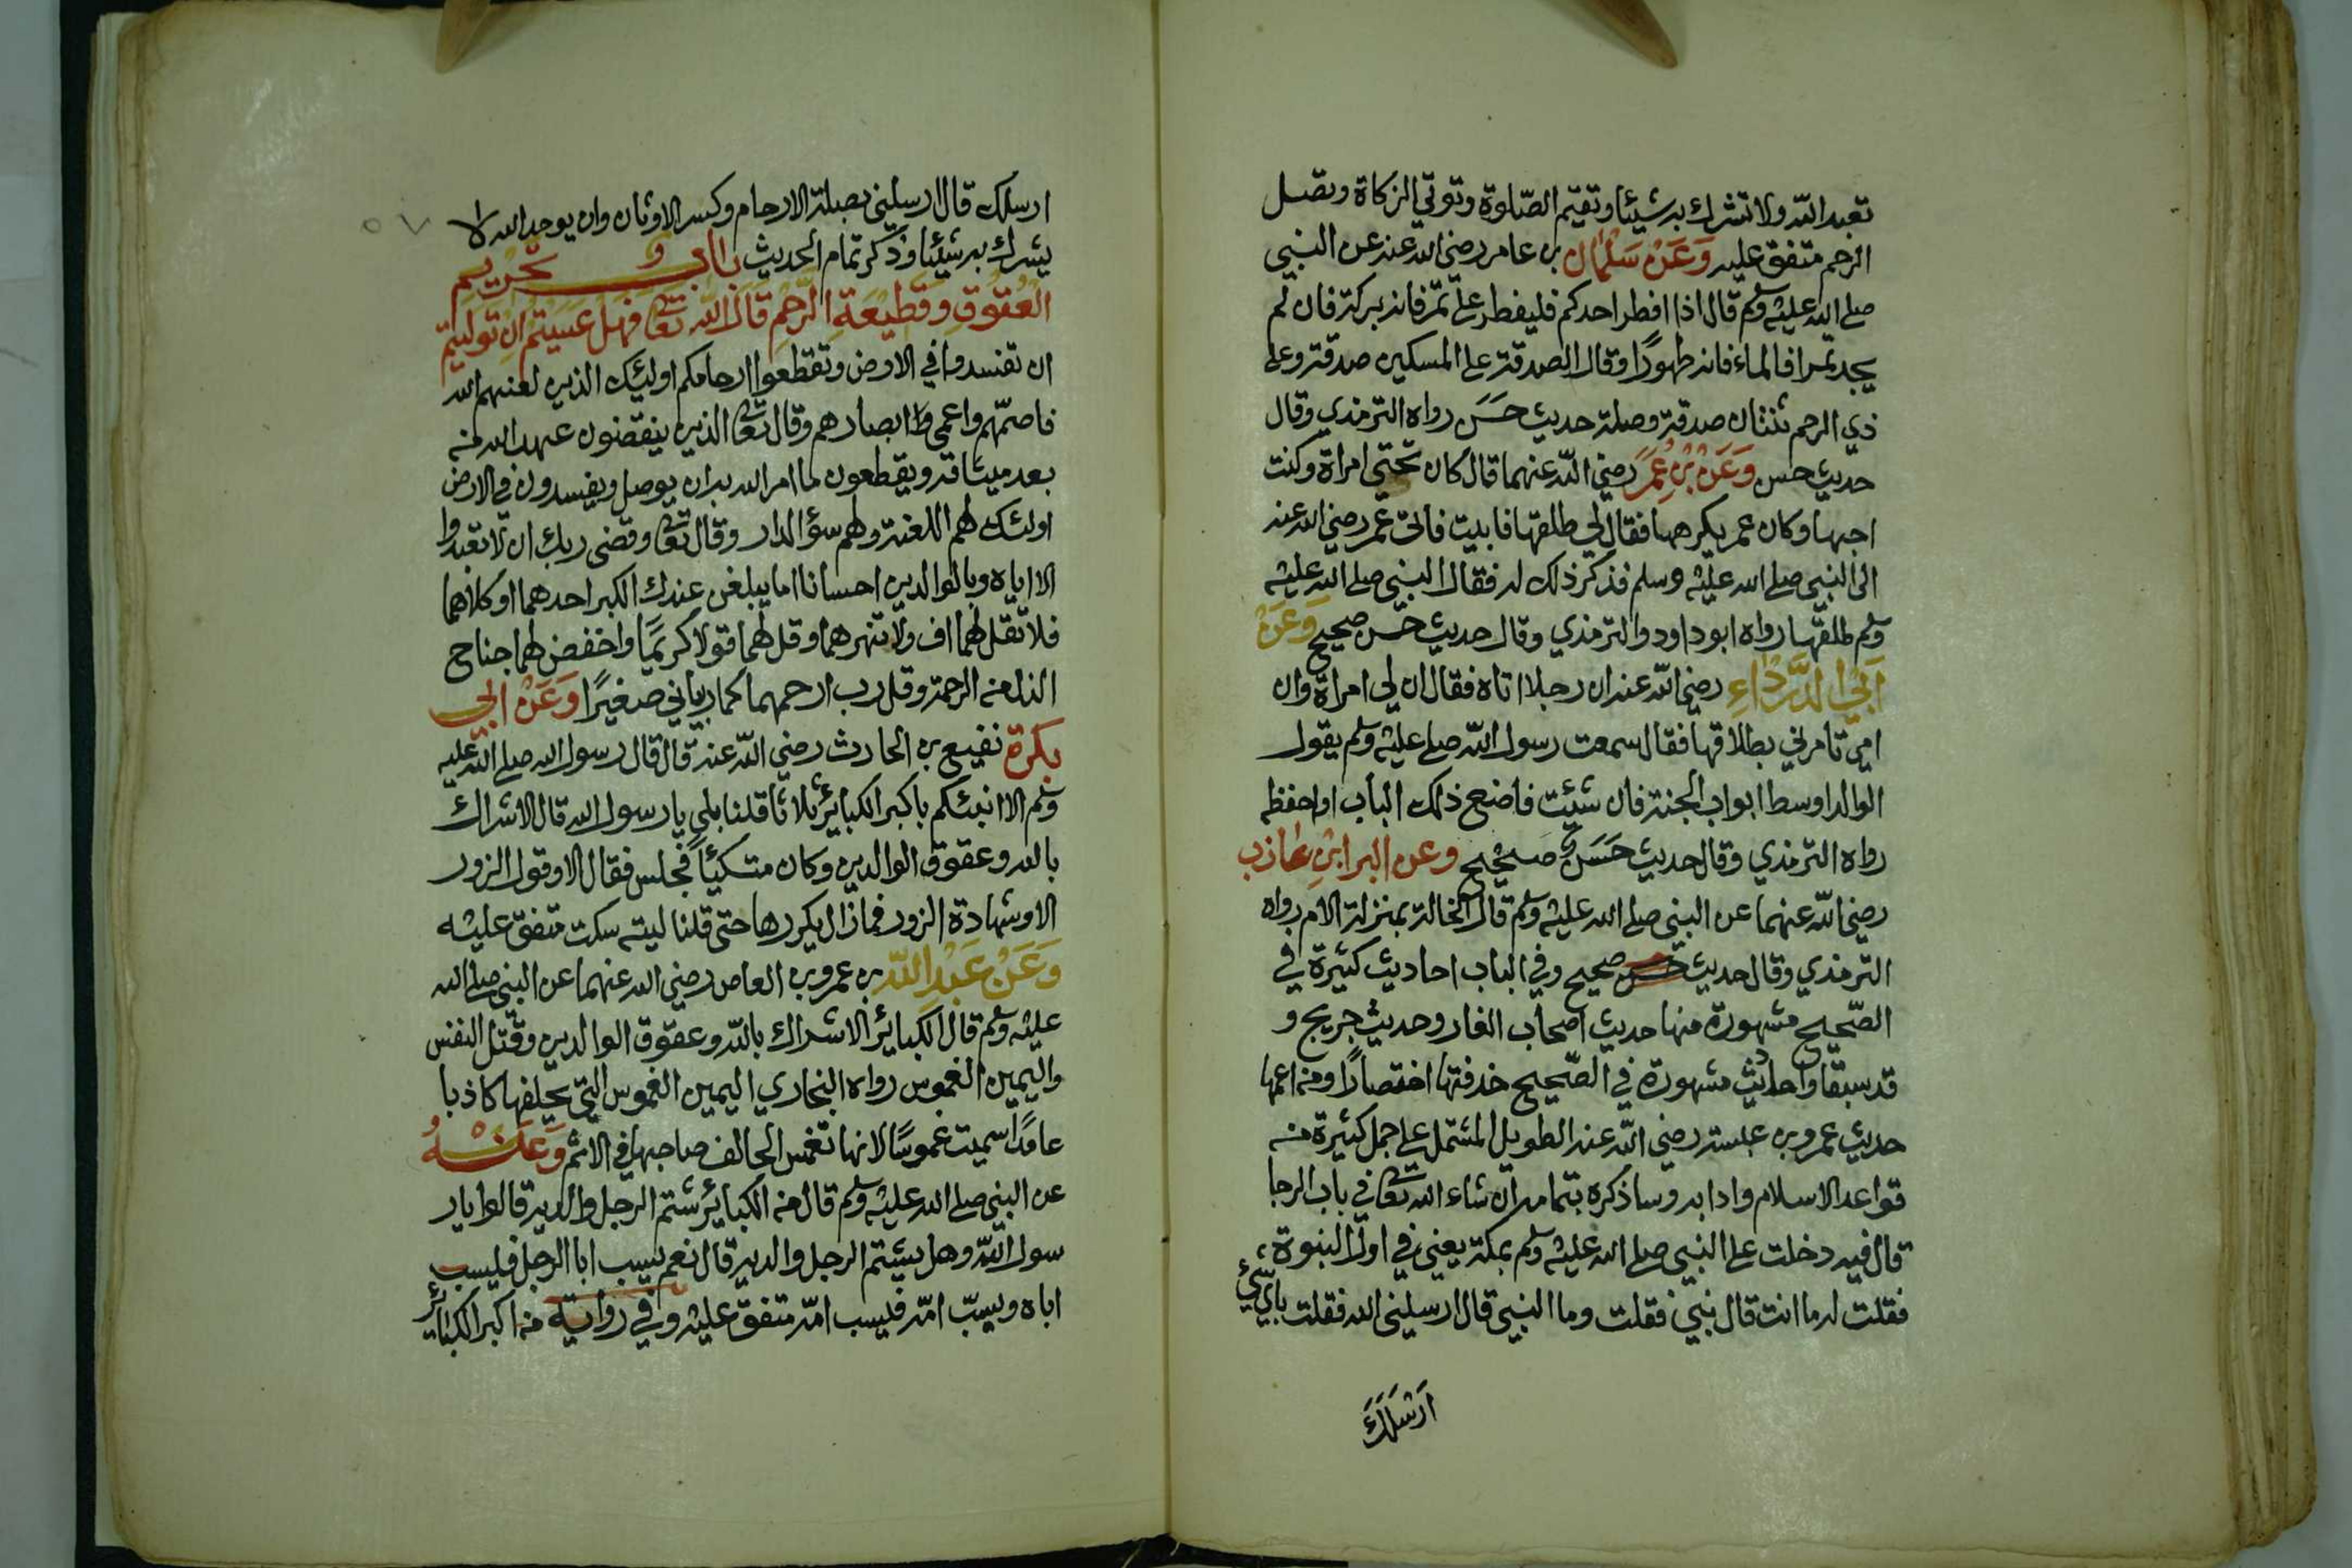 تعبد الله ولا تشرك به شيئا وتقيم الصّلوة وتوتي الزكاة وتصل
الرحم متفق عليه وَعَنْ سَلْمَان بن عامر رضي الله عنه عن النبي
صلى الله عليه وسلم قال اذا افطر احدكم فليفطر على تمر فانه بركة فان لم
يجد تمرا فالماء فانه طهورًا وقال الصدقة على المسكين صدقة وعلى
ذي الرحم ثنتان صدقة وصلة حديث حَسَن رواه الترمذي وقال
حديث حسن وَعَنْ بْنِ عُمَرَ رضي الله عنهما قال كان تحتي امراة وكنت
احبها وكان عمر يكرهها فقال لي طلقها فابيت فاتى عمر رضي الله عنه
الى النبي صلى الله عليه وسلم فذكر ذلك له فقال النبي صلى الله عليه
وسلم طلقها رواه ابو داود والترمذي وقال حديث حسن صحيح وَعَنْ
اَبِي الدَّرْدَاءِ رضي الله عنه ان رجلا اتاه فقال ان لي امراة وان
امي تامرني بطلاقها فقال سمعت رسول الله صلى عليه وسلم يقول
الوالد اوسط ابواب الجنة فان شئت فاضع ذلك الباب او احفظه
رواه الترمذي وقال حديث حَسَنٌ صحيح وعن البرا ابْنِ عَازب
رضي الله عنهما عن النبي صلى الله عليه وسلم قال الخالة بمنزلة الام رواه
الترمذي وقال حديث حسن صحيح وفي الباب احاديث كثيرة في
الصّحيح مشهورة منها حديث اصحاب الغار وحديث جريج و
قد سبقا واحاديث مشهورة في الصّحيح حذفتها اختصارًا ومن اعمها
حديث عمرو بن عبسة رضي الله عنه الطويل المشتمل على جمل كثيرة من
قواعد الاسلام وادابه وساذكره بتمامه ان شاء الله تعالى في باب الرجا
قال فيه دخلت على النبي صلى الله عليه وسلم بمكة يعني في اول النبوة
فقلت له ما انت قال نبي فقلت وما النبي قال ارسليني الله فقلت باي شئ
اَرْسَلَكَ
ارسلك قال ارسليني بصلة الارحام وكسر الاوثان وان يوحد الله لا
يشرك به شيئا وذكر تمام الحديث باب تحريم
العُقوقِ وقَطيْعَةِ الرَّحِمِ قَالَ الله تعالى فهل عَسَيْتم ان تَوَلَيْتم
ان تفسدوا في الارض وتقطعوا ارحامكم اوليئك الذين لعنهم الله
فاصمّهم واعمى ابصارهم وقال تعالى الذين ينقضون عهد الله من
بعد ميثاقه ويقطعون ما امر الله به ان يوصل ويفسدون في الارض
اولئك لهم اللعنة ولهم سؤ الدار وقال تعالى وقضى ربك ان لا تعبدوا
الا اياه وبالوالدين احسانا اما يبلغن عندك الكبر احدهما او كلاهما
فلا تقل لهما اف ولا تنهرهما وقل لهما قولا كريمًا واخفض لهما جناح
الذل من الرحمة وقل رب ارحمهما كما ربياني صغيرًا وَعَنْ ابي
بكرة نفيع بن الحارث رضي الله عنه قال قال رسول الله صلى الله عليه
وسلم الا انبئكم باكبر الكبائر ثلاثا قلنا بلى يا رسول الله قال الاشراك
بالله وعقوق الوالدين وكان متكئًا فجلس فقال الا وقول الزور
الا وشهادة الزور فما زال يكررها حتى قلنا ليته سكت متفق عليه
وَعَنْ عَبْدِ اللّه بن عمرو بن العاص رضي الله عنهما عن النبي صلى الله
عليه وسلم قال الكبائر الاشراك بالله وعقوق الوالدين وقتل النفس
واليمين الغموس رواه البخاري اليمين الغموس التي يحلفها كاذبا
عامدًا سميت غموسًا لانها تغمس الحالف صاحبها في الاثم وَعَنْهُ
عن النبي صلى الله عليه وسلم قال من الكبائر شتم الرجل والديه قالوا يار
سول الله وهل يشتم الرجل والديه قال نعم يسب ابا الرجل فليسب
اباه ويسبّ امّه فليسب امّه متفق عليه وفي رواية من اكبر الكبائر